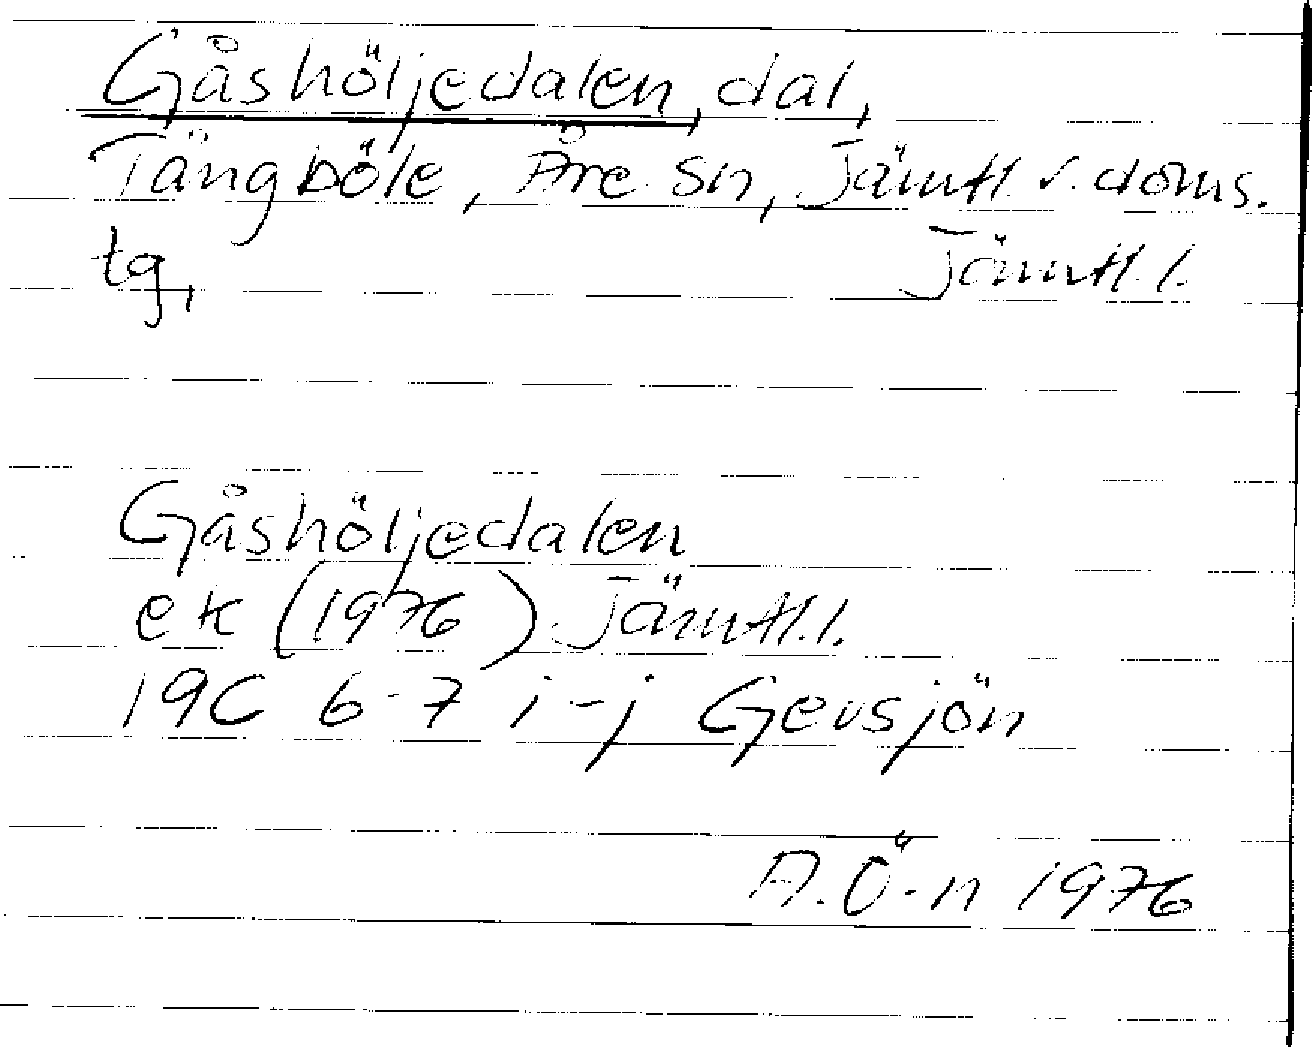 Gåshöljedalen, dal,
Tängböle, Åre sn, Jämtl. v. doms.
tg, Jämtl. l.
Gåshöljedalen
ek (1976) Jämtl. l.
19C 6-7 i-j Gevsjön
A. Ö-n 1976